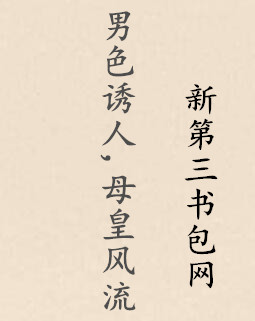 男色诱人，母皇风流
新第三书包网